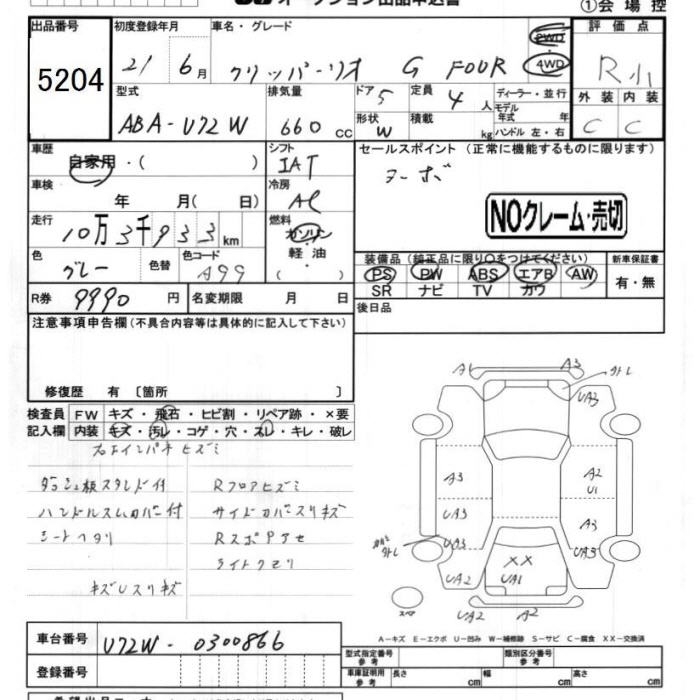 オークション出品申込書
①会場控
出品番号 初度登録年月 車名・グレード 評価点
5204
21 6月 クリッパーリオ G FOUR 2WD 4WD R小
型式 排気量 ドア 定員 ディーラー・並行 外装 内装
ABA-U72W 660cc 5 4人 モデル年式 年 C C
形状 積載
W kg ハンドル 左・右
車歴 シフト セールスポイント(正常に機能するものに限ります)
自家用・( ) IAT ターボ
車検 冷房
年 月( 日) AC
NOクレーム・売切
走行 燃料
10万3千933km ガソリン
軽油
( )
色 色替 色コード 装備品(純正品に限り○をつけてください) 新車保証書
グレー A99 PS PW ABS エアB AW 有・無
SR ナビ TV カワ
R券 9990円 名変期限 月 日 後日品
注意事項申告欄(不具合内容等は具体的に記入して下さい)
修復歴 有〔箇所 〕
検査員 FW キズ・飛石・ヒビ割・リペア跡・×要
記入欄 内装 キズ・汚レ・コゲ・穴・スレ・キレ・破レ
右Fインパネヒズミ
ダッシュ板スタンド付 Rフロアヒズミ
ハンドルスレカバー付 サイドカバースリキズ
シートヘタリ Rスポアセ
ライトクモリ
キズUスリキズ
A1 A3
外トレ
UA3
A3 A2
U1
UA3 A3
UA3 UA3
トレ
UA2 ×× UA2
UA1
UA2 A2
スペア
A-キズ E-エクボ U-凹み W-補修跡 S-サビ C-腐食 XX-交換済
車台番号 U72W-0300866
登録番号
型式指定番号 参考 類別区分番号 参考
車庫証明用 参考 長さ cm 幅 cm 高さ cm